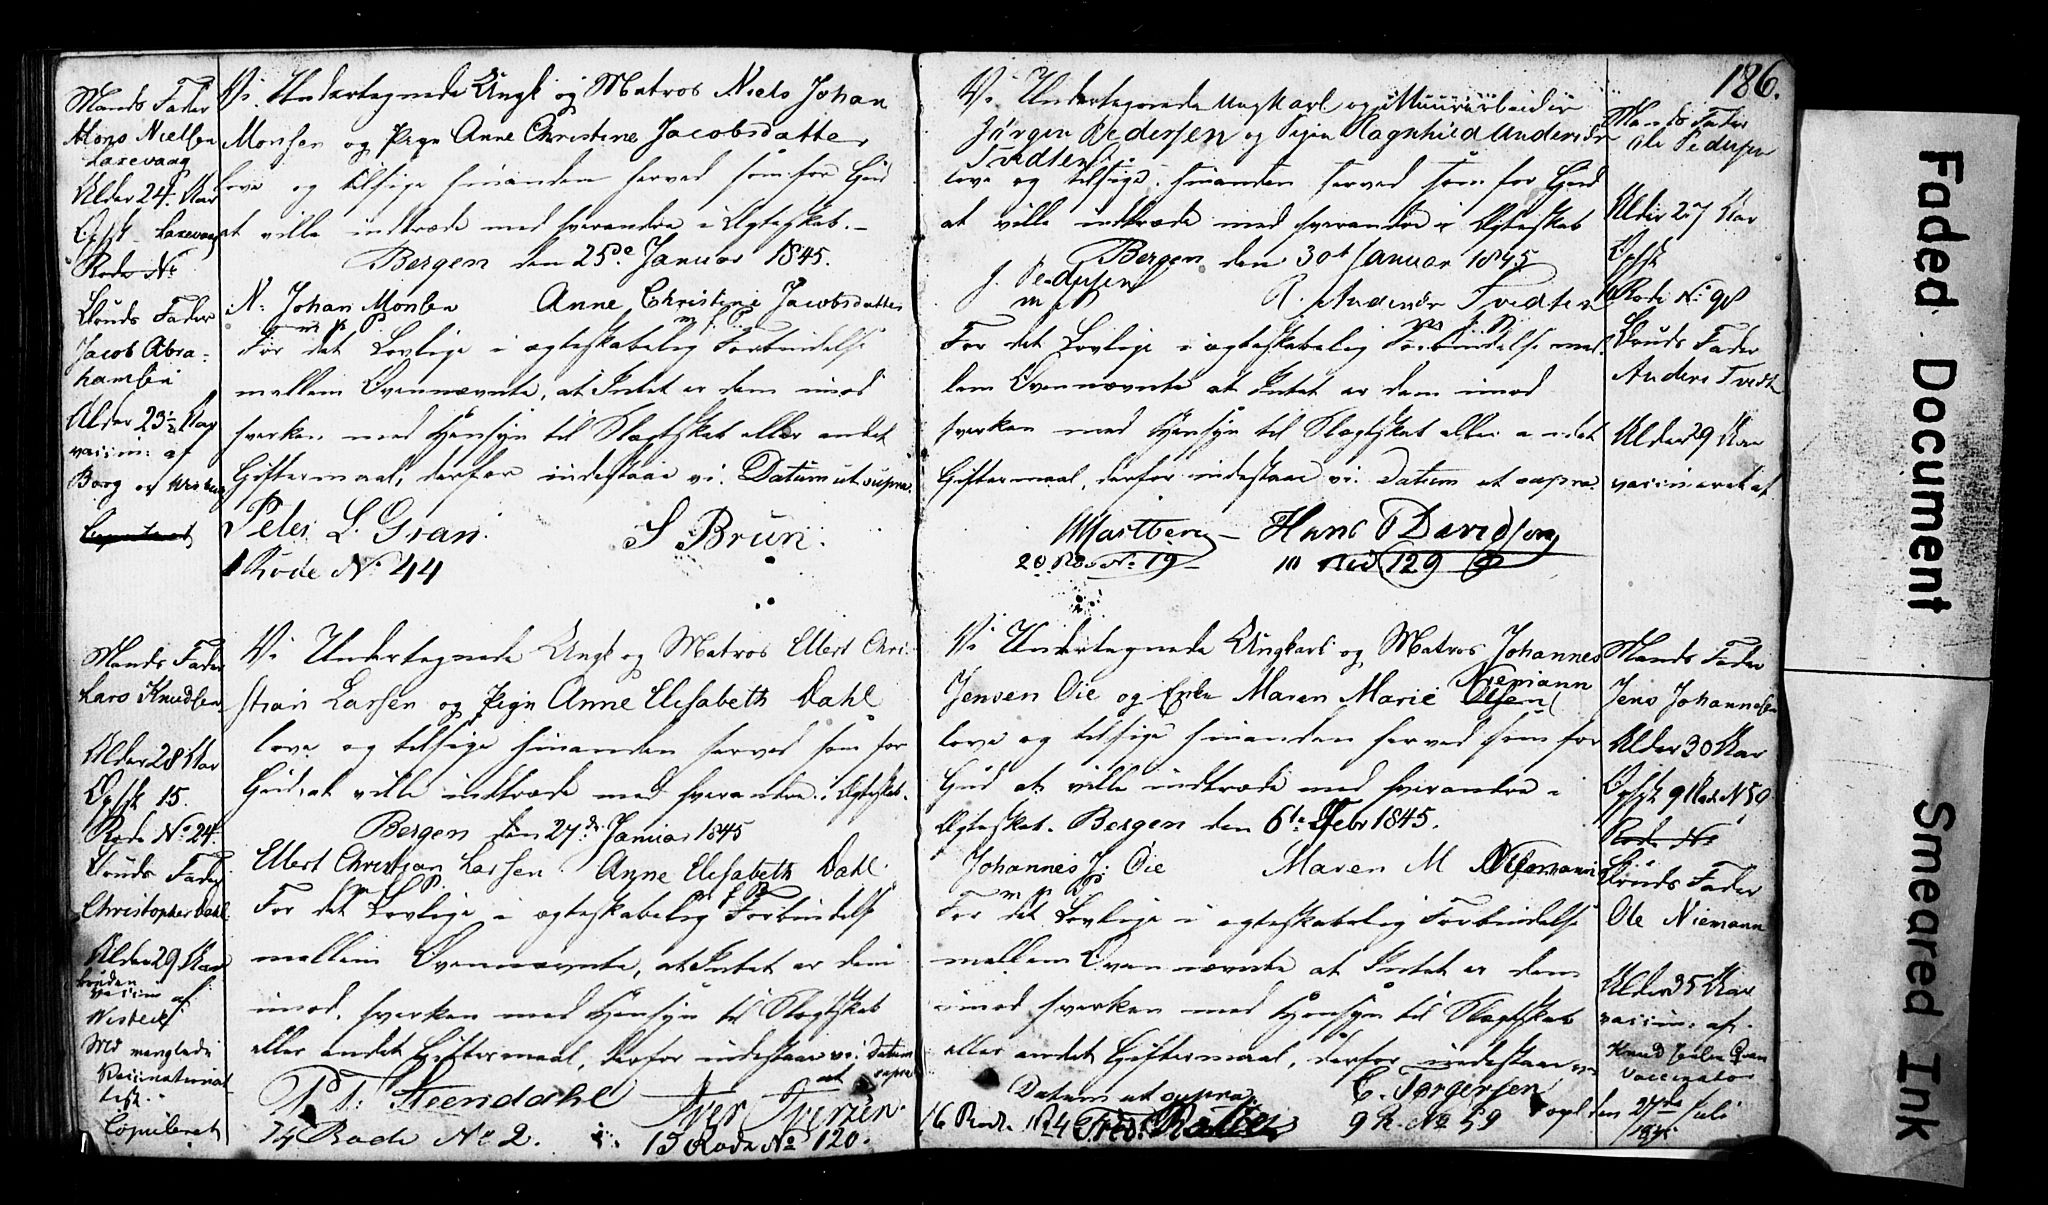 Mands Fader
Mons Nielsen
Laxevaag
Alder 24 Aar
Opsk Laxevaag
Rode No
Bruds Fader
Jacob Abra-
hamsen
Alder 23½ Aar
vaccin: af
Borg og
Copuleret
Vi Undertegnede Ungk og Matros Niels Johan
Monsen og Pign Anne Christine Jacobsdatter
love og tilsige hinanden herved som for Gud
at ville indtræde med hverandre i Ægteskab.
Bergen den 25de Januar 1845.
N: Johan Monsen Anne Christine Jacobsdatter
m p P m f P
For det Lovlige i ægteskabelig Forbindelse
mellem Ovennævnte, at Intet er dem imod
hverken med Hensyn til Slægtskab eller andet
Giftermaal, derfor indestaae vi. Datum ut supra.
Peter L. Gran. S Brun.
1 Rode No 44
Mands Fader
Lars Knudsen
Alder 28 Aar
Opsk 15.
Rode No 24.
Bruds Fader
Christopher Dahl
Alder 29 Aar
Bruden
vaccin af
Md manglede
Vaccinations
Copuleret
Vi Undertegnede Ungk og Matros Ellert Chri-
stian Larsen og Pign Anne Elisabeth Dahl
love og tilsige hinanden herved som for
Gud at ville indtræde med hverandre i Ægteskab.
Bergen den 27de Januar 1845
Ellert Christian Larsen Anne Elisabeth Dahl.
For det Lovlige i ægteskabelig Forbindelse
mellem Ovennævnte, at Intet er dem
imod, hverken med Hensyn til Slægtskab
eller andet Giftermaal, derfor indestaae vi. Datum
ut supra
P. T. Steendahl Iver Iversen.
24 Rode No 2. 15 Rode No 120.
186.
Vi Undertegnede Ungkarl og Muurarbeider
Jørgen Pedersen og Pigen Ragnhild Andersdr
Tvedten
love og tilsige hinanden herved som for Gud
at ville indtræde med hverandre i Ægteskab
Bergen den 30t Januar 1845
J. Pedersen R. Andersdr Tvedten
m p P m f P
For det Lovlige i ægteskabelig Forbindelse mel-
lem Ovennævnte at Intet er dem imod
hverken med Hensyn til Slægtskab eller andet
Giftermaal, derfor indestaae vi. Datum ut supra.
Hans Davidsen
20 Rode No 19 Rode 129
Mands Fader
Ole Pedersen
Alder 27 Aar
Opsk
Rode No 98
Bruds Fader
Anders Tvedt
Alder 29 Aar
vaccineret af
Vi Undertegnede Ungkarl og Matros Johannes
Niemann
Jensen Øie og Enke Maren Marie Olsen
love og tilsige hinanden herved som for
Gud at ville indtræde med hverandre i
Ægteskab. Bergen den 6te Febr 1845.
Johannes J: Øie Maren M Niemann
m p P
For det Lovlige i ægteskabelig Forbindelse
mellem Ovennævnte at Intet er dem
imod hverken med Hensyn til Slægtskab
eller andet Giftermaal, derfor indestaae vi
Datum ut supra. C. Torgersen
16 Rode No 24 Fred: 9 R. No 59
Mands Fader
Jens Johannesen
Alder 30 Aar
Opsk 9 Rode N 59
Rode No
Bruds Fader
Ole Niemann
Alder 35 Aar
vaccin: af
Knud
Vaccinator
copl den 27de Juli
1845
Faded Document
Smeared Ink